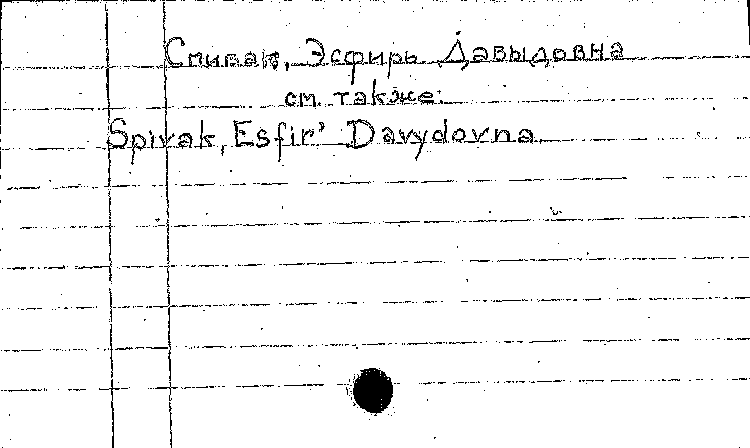 Спивак, Эсфирь Давыдовна
см. также:
Spivak, Esfir' Davydovna